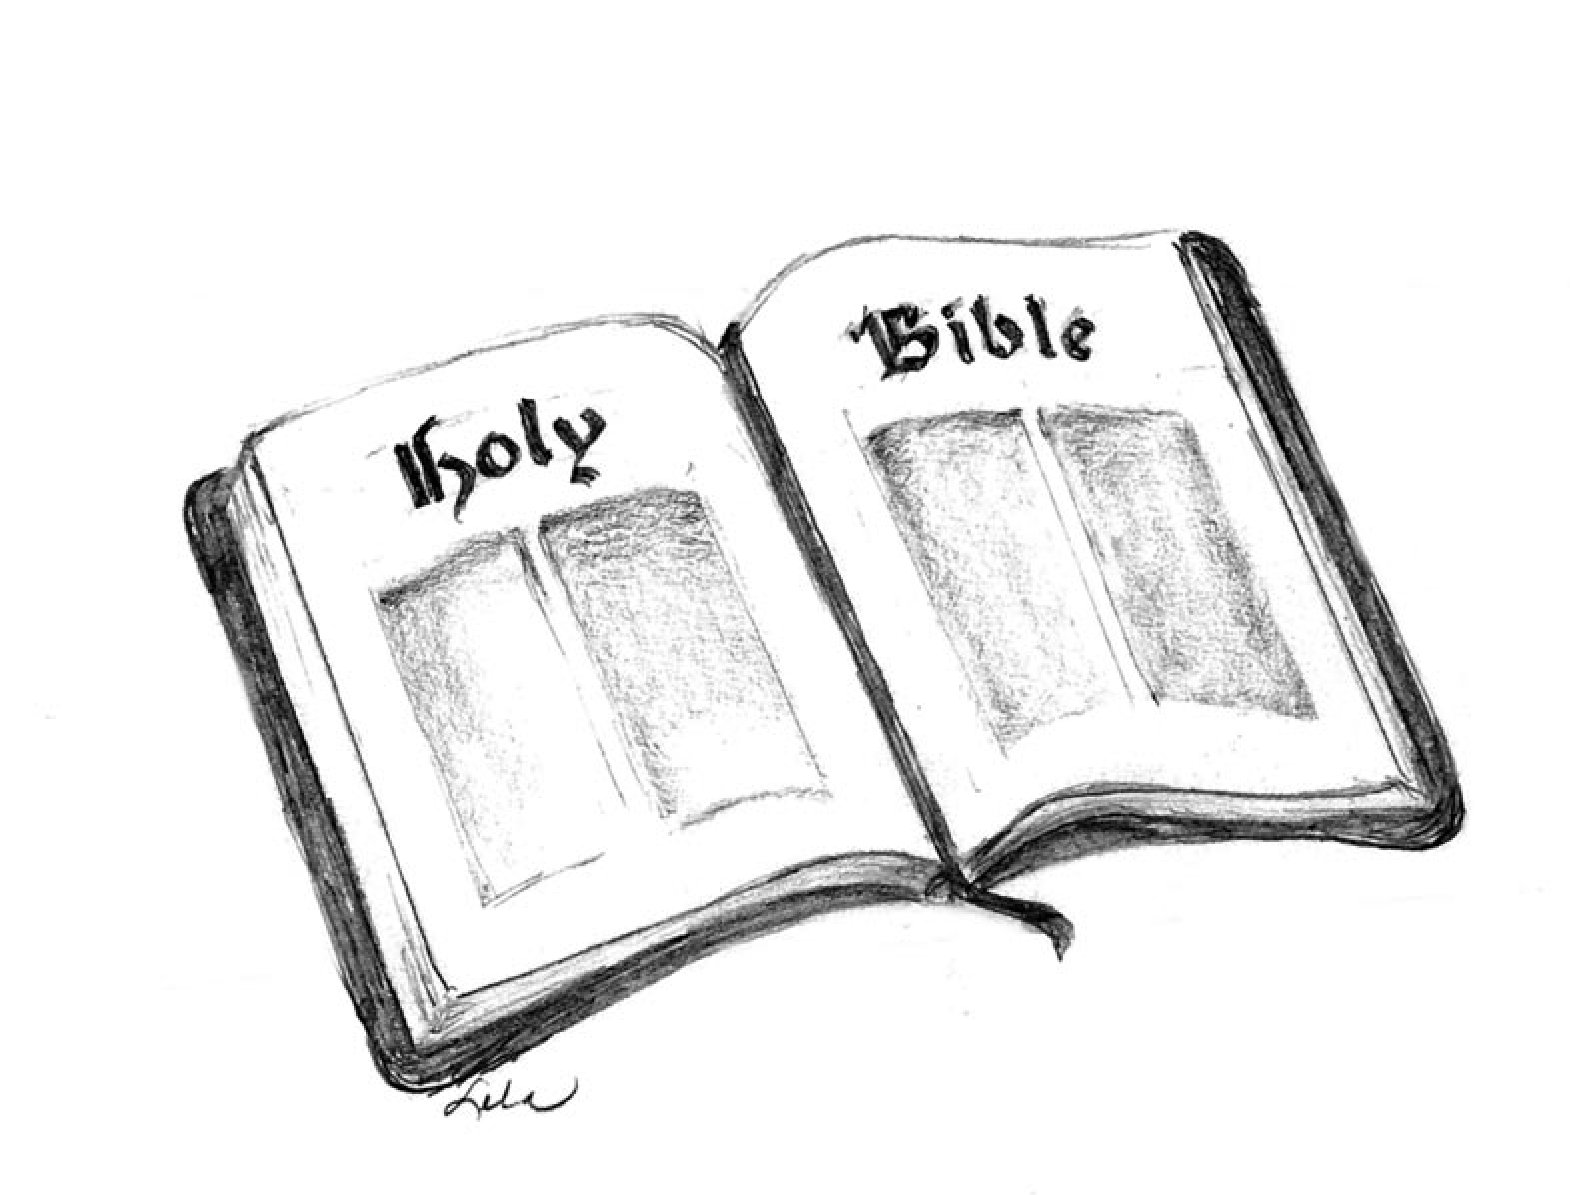 Holy
Bible
Lela